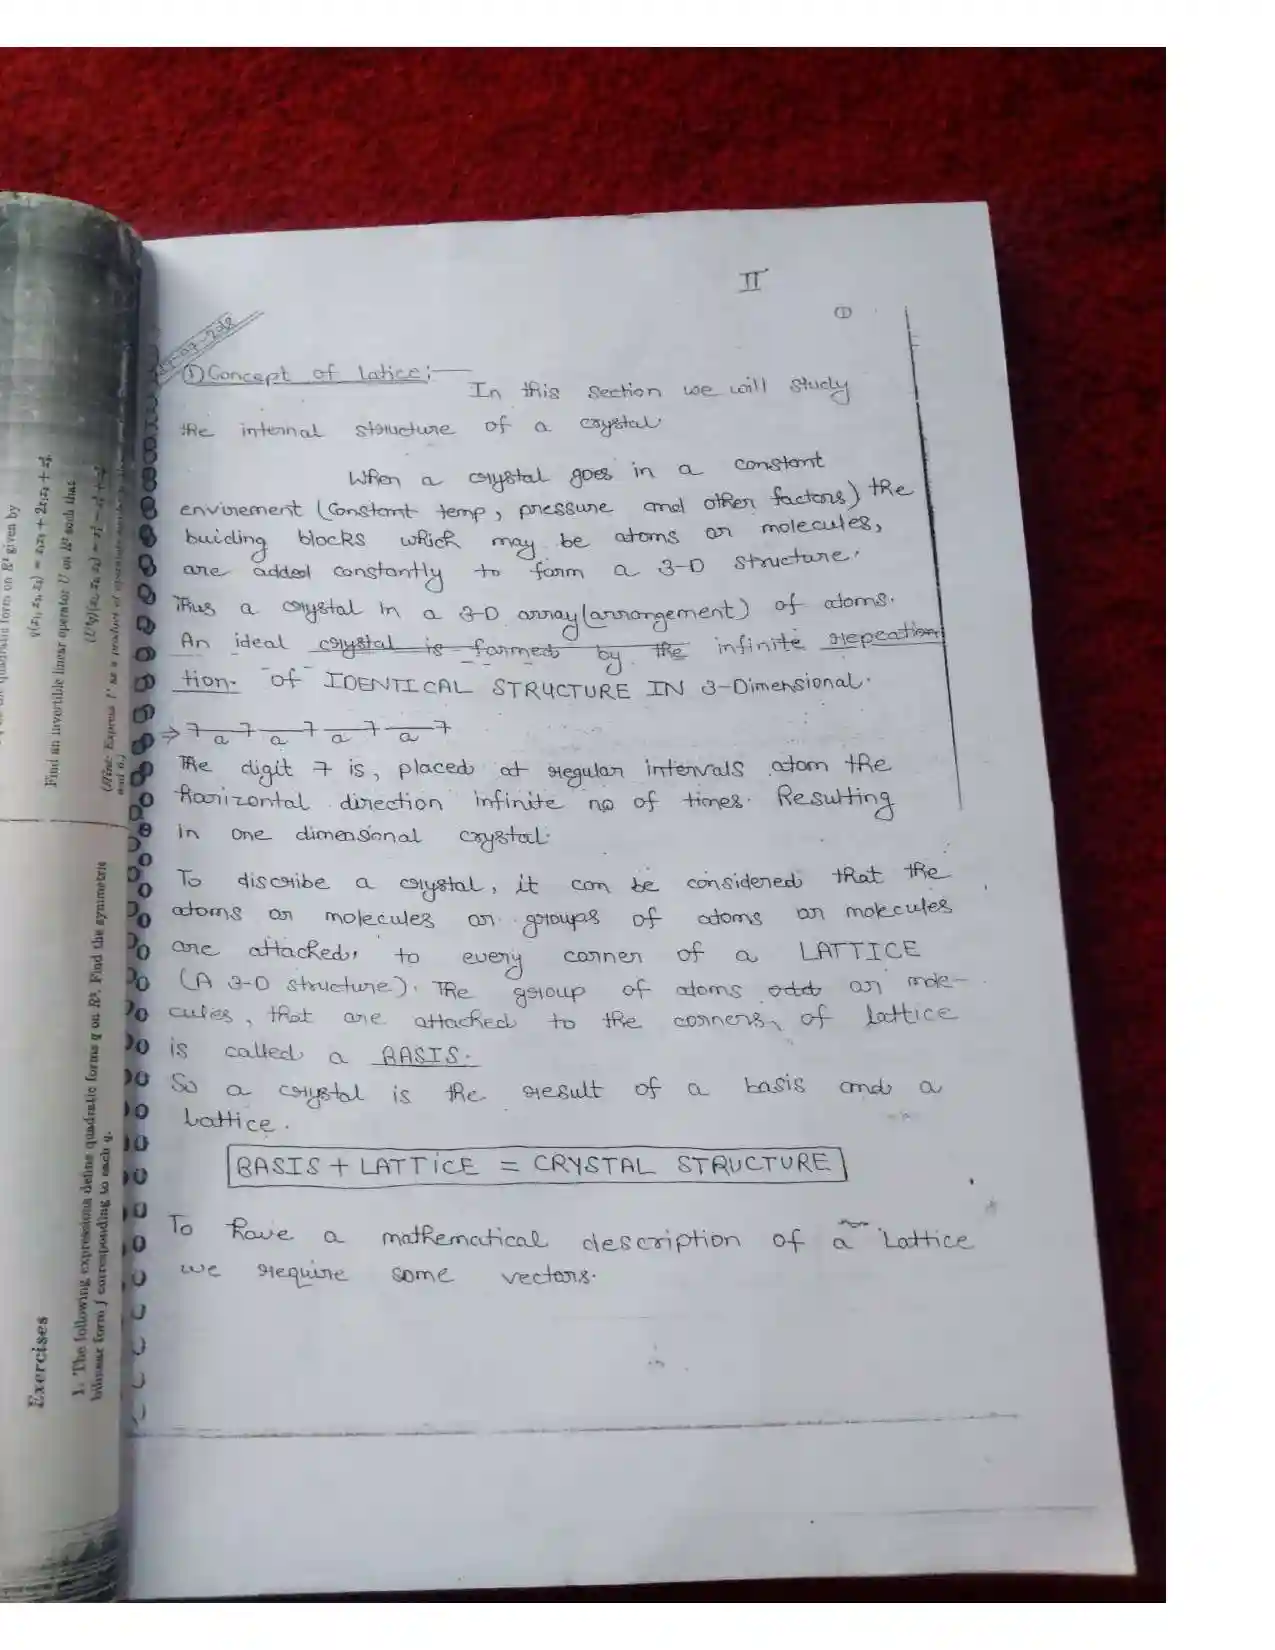 II
①
① Concept of Latice :—
In this section we will study
the internal structure of a crystal.
When a crystal goes in a constant
envirement (Constant temp, pressure and other factors) the
buiding blocks which may be atoms or molecules,
are added constantly to form a 3-D structure.
Thus a crystal in a 3-D array (arrangement) of atoms.
An ideal crystal is formed by the infinite repeation
tion. of IDENTICAL STRUCTURE IN 3-Dimensional.
→ 7 a 7 a 7 a 7 a 7
The digit 7 is, placed at regular intervals atom the
horizontal direction infinite no of times. Resulting
in one dimensional crystal.
To discribe a crystal, it can be considered that the
atoms or molecules or groups of atoms or molecules
are attached, to every corner of a LATTICE
(A 3-D structure). The group of atoms odd or mole-
cules, that are attached to the corners, of lattice
is called a BASIS.
So a crystal is the result of a basis and a
Lattice.
BASIS + LATTICE = CRYSTAL STRUCTURE
To have a mathematical description of a Lattice
we require some vectors.
quadratic form on R³ given by
Find an invertible linear operator U on R³ such that
Exercises
1. The following expressions define quadratic forms q on R². Find the symmetric
bilinear form f corresponding to each q.